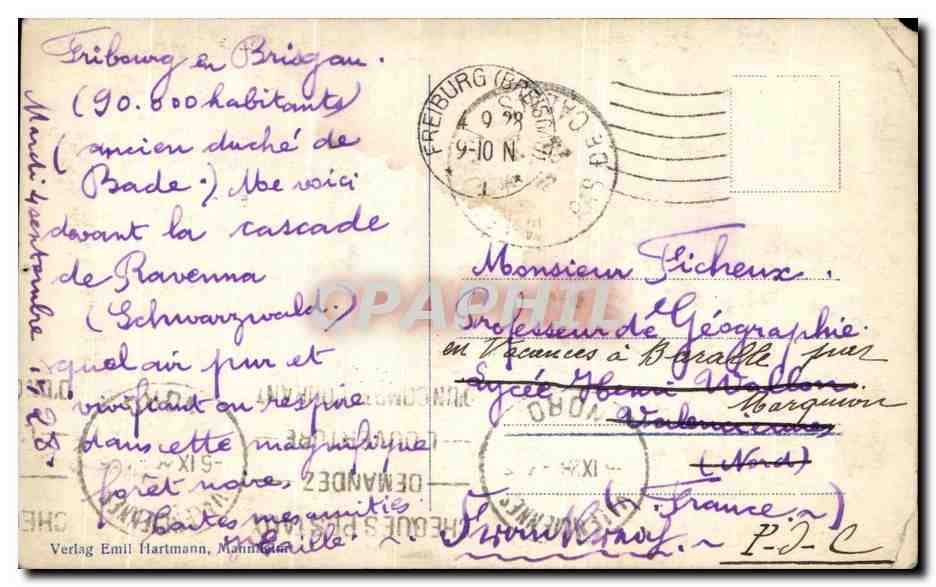 Fribourg en Brisgau.
(90.000 habitants)
(ancien duché de
Bade.) Me voici
devant la cascade
de Ravenna
(Schwarzwald.)
quel air pur et
vivifiant on respire
dans cette magnifique
forêt noire,
Verlag Emil Hartmann, Mannheim
Mardi 4 septembre 1928.
FREIBURG (BREISGAU)
9 28
9-10 N
Monsieur Ficheux.
Professeur de Géographie.
en Vacances à Baralle par
Lycée Henri Wallon.
Marquion
Valenciennes
(Nord)
(France.)
P-D-C
VALENCIENNES
NORD
5 IX
DEMANDEZ
L'OUVERTURE
D'UN COMPTE COURANT
CHEQUES POSTAUX
OPAPHIL